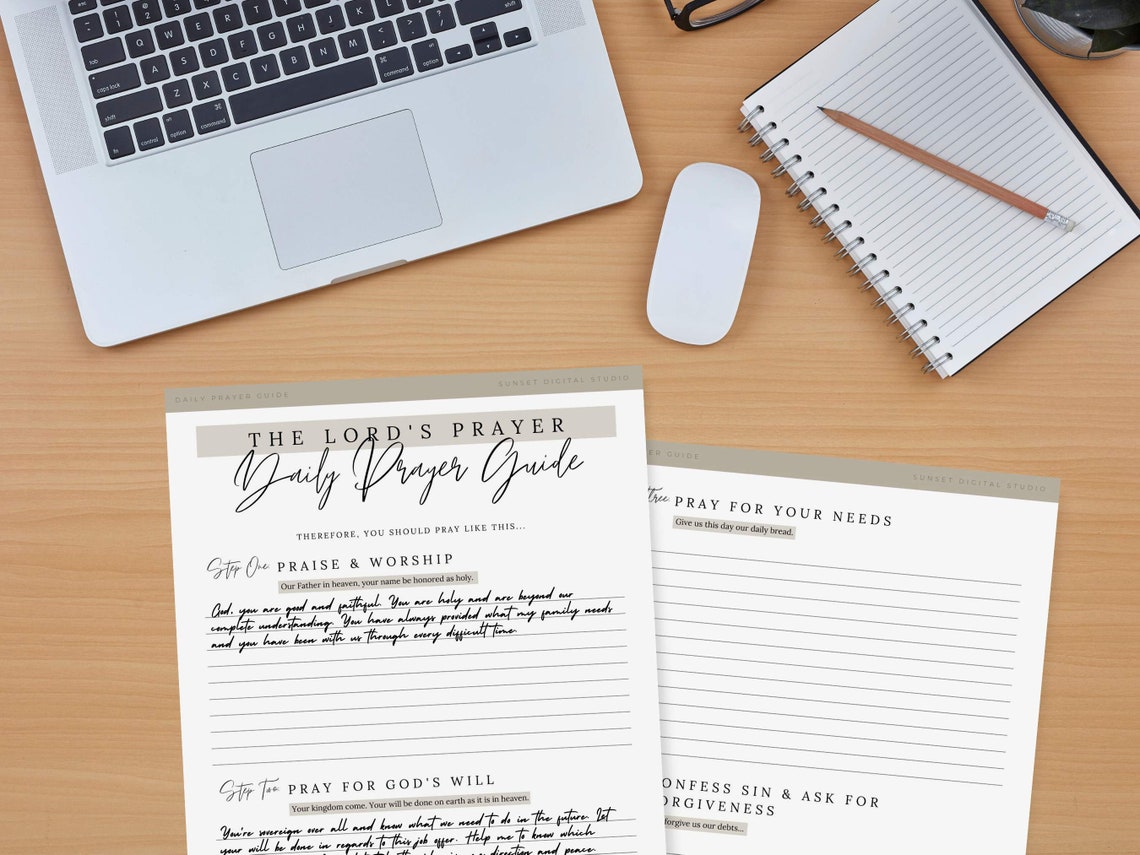 tab Q W E R T
caps lock A S D F G H J K L
shift Z X C V B N M shift
fn control option command command option
DAILY PRAYER GUIDE
SUNSET DIGITAL STUDIO
THE LORD'S PRAYER
Daily Prayer Guide
THEREFORE, YOU SHOULD PRAY LIKE THIS...
Step One: PRAISE & WORSHIP
Our Father in heaven, your name be honored as holy.
God, you are good and faithful. You are holy and are beyond our
complete understanding. You have always provided what my family needs
and you have been with us through every difficult time.
Step Two: PRAY FOR GOD'S WILL
Your kingdom come. Your will be done on earth as it is in heaven.
You're sovereign over all and know what we need to do in the future. Let
your will be done in regards to this job offer. Help me to know which
direction and peace.
ER GUIDE
SUNSET DIGITAL STUDIO
PRAY FOR YOUR NEEDS
Give us this day our daily bread.
ONFESS SIN & ASK FOR
ORGIVENESS
forgive us our debts...